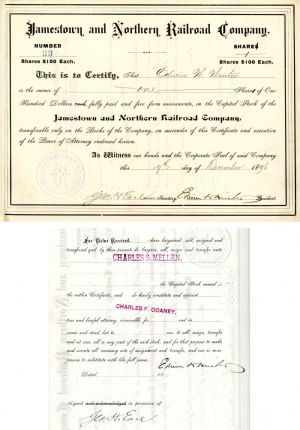 Jamestown and Northern Railroad Company.
NUMBER
33
SHARES
1
Shares $100 Each.
Shares $100 Each.
This is to Certify, That Edwin W. Winter
is the owner of one Shares of One
Hundred Dollars each, fully paid and free from assessments, in the Capital Stock of the
Jamestown and Northern Railroad Company,
transferable only on the Books of the Company, on surrender of this Certificate and execution
of the Power of Attorney endorsed hereon.
As Witness our hands and the Corporate Seal of said Company
this 19th day of December 1896
Geo H Earl Secretary Edwin W Winter President
For Value Received, have bargained, sold, assigned and
transferred and by these presents do bargain, sell, assign and transfer unto
CHARLES S. MELLEN,
the Capital Stock named in
the within Certificate, and do hereby constitute and appoint
CHARLES F. COANEY,
true and lawful attorney, irrevocable, for and in
name and stead, but to use, to sell, assign, transfer
and set over, all or any part of the said stock, and for that purpose to make
and execute all necessary acts of assignment and transfer, and one or more
persons to substitute with like full power.
Edwin W Winter
Dated,
Signed and acknowledged in presence of
Geo. H. Earl